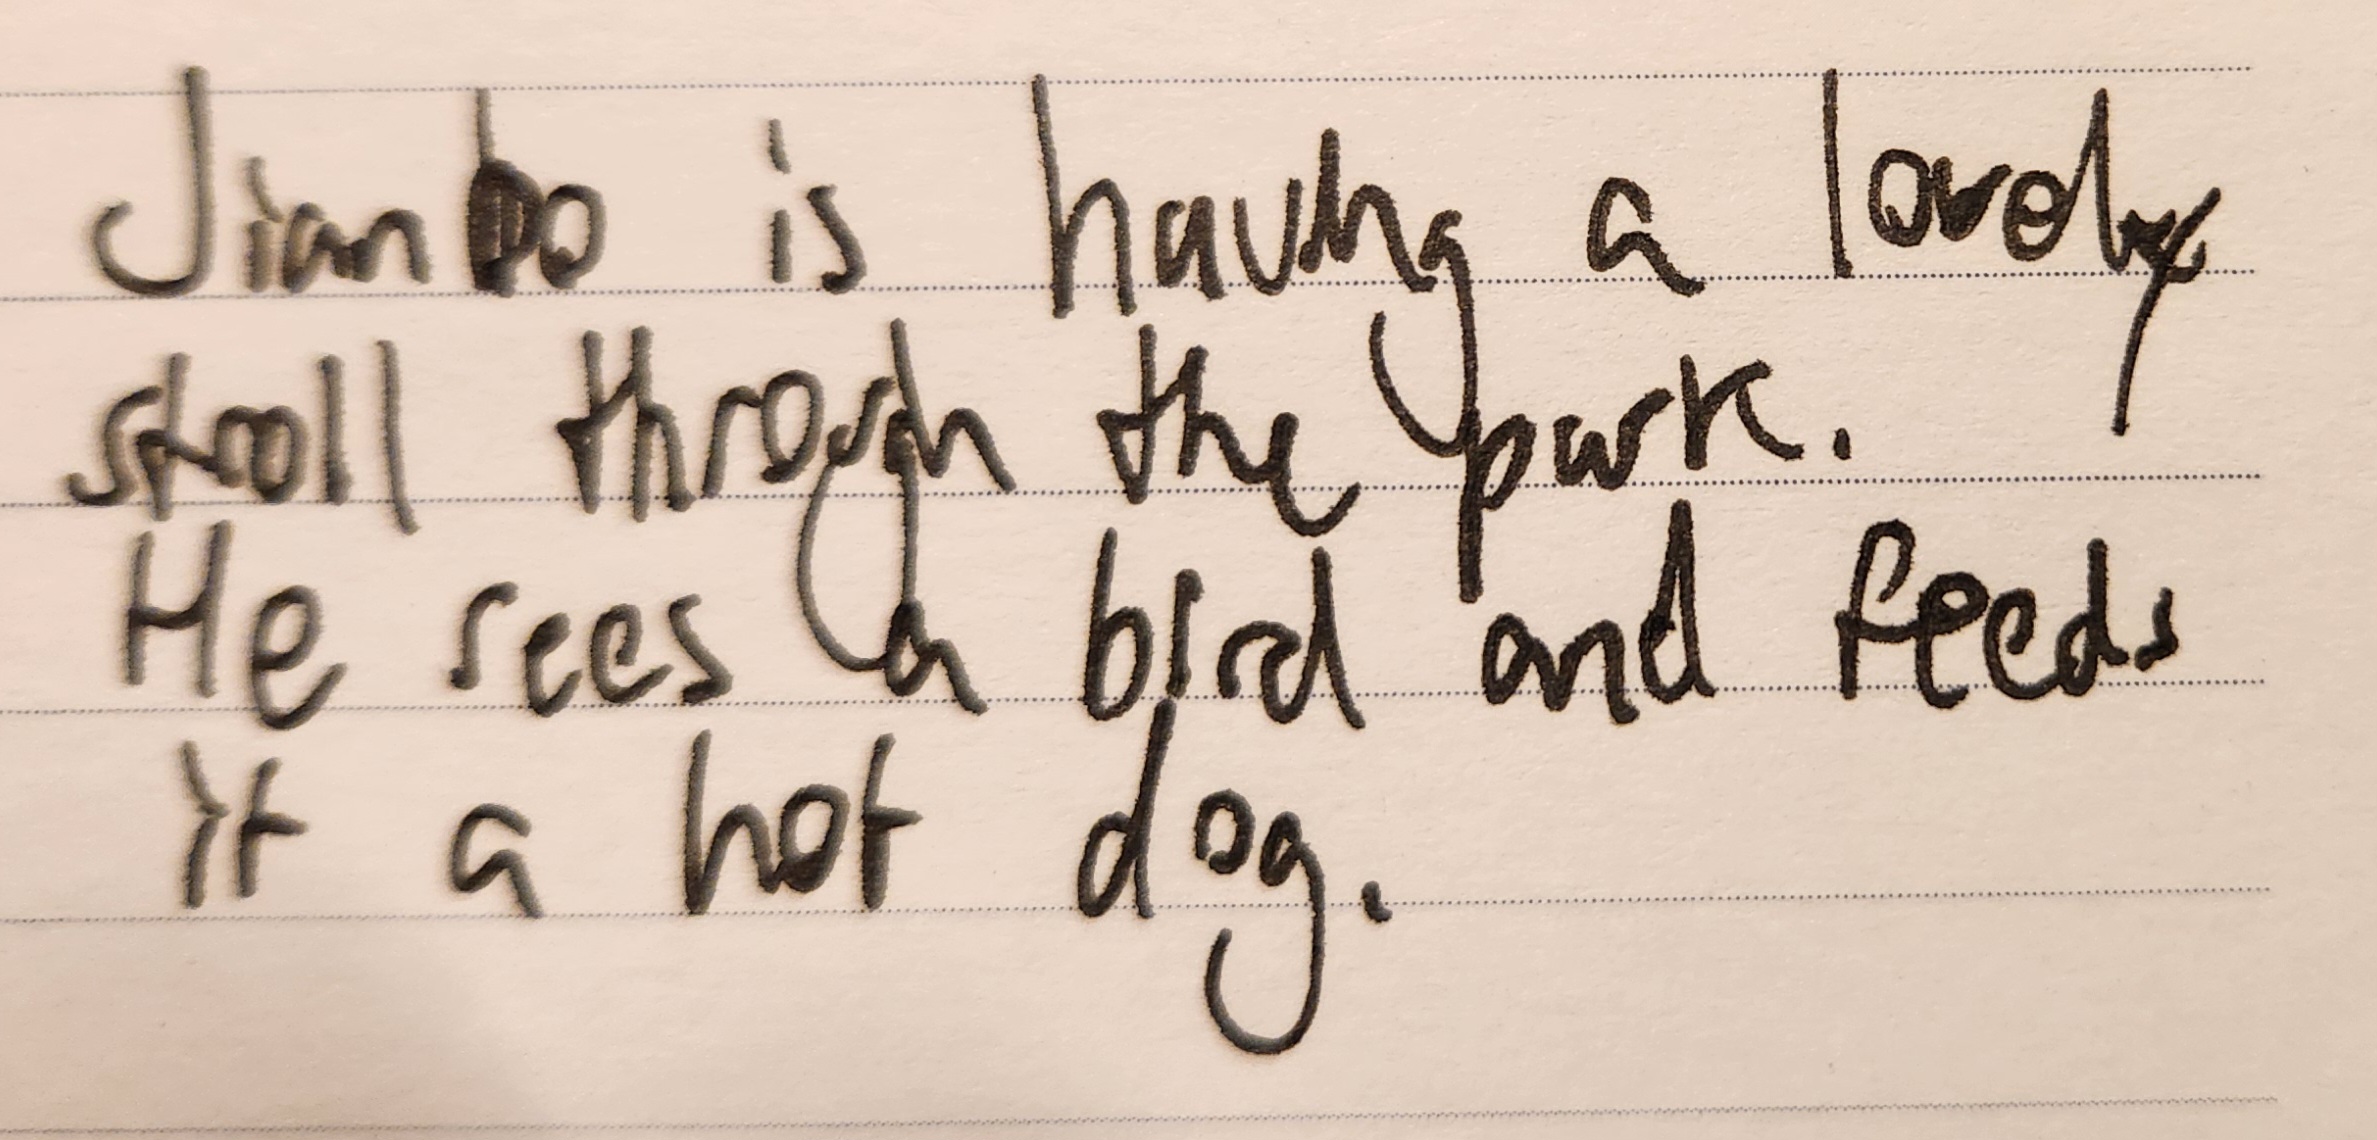 Jianbo is having a lovely
stroll through the park.
He sees a bird and feeds
it a hot dog.